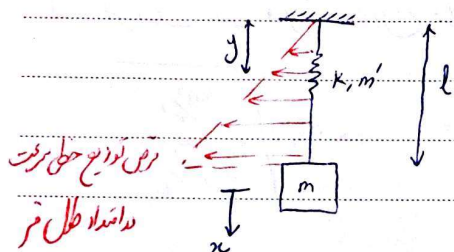 y
k, m'
l
فرض توزیع خطی سرعت
m
در امتداد طول فنر
x